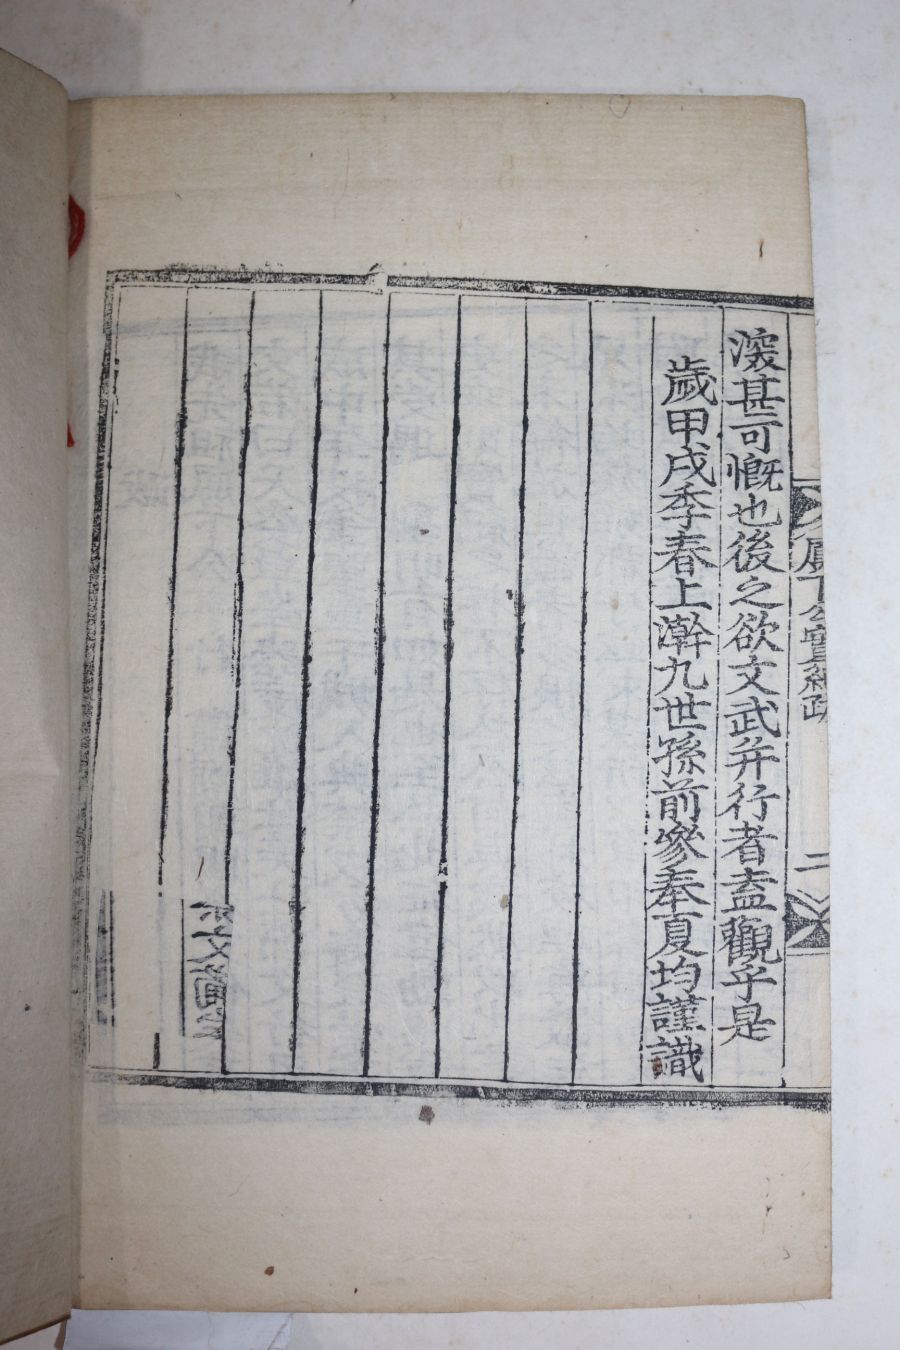 深甚可慨也後之欲文武并行者盍觀乎是
歲甲戌季春上澣九世孫前參奉夏均謹識
二